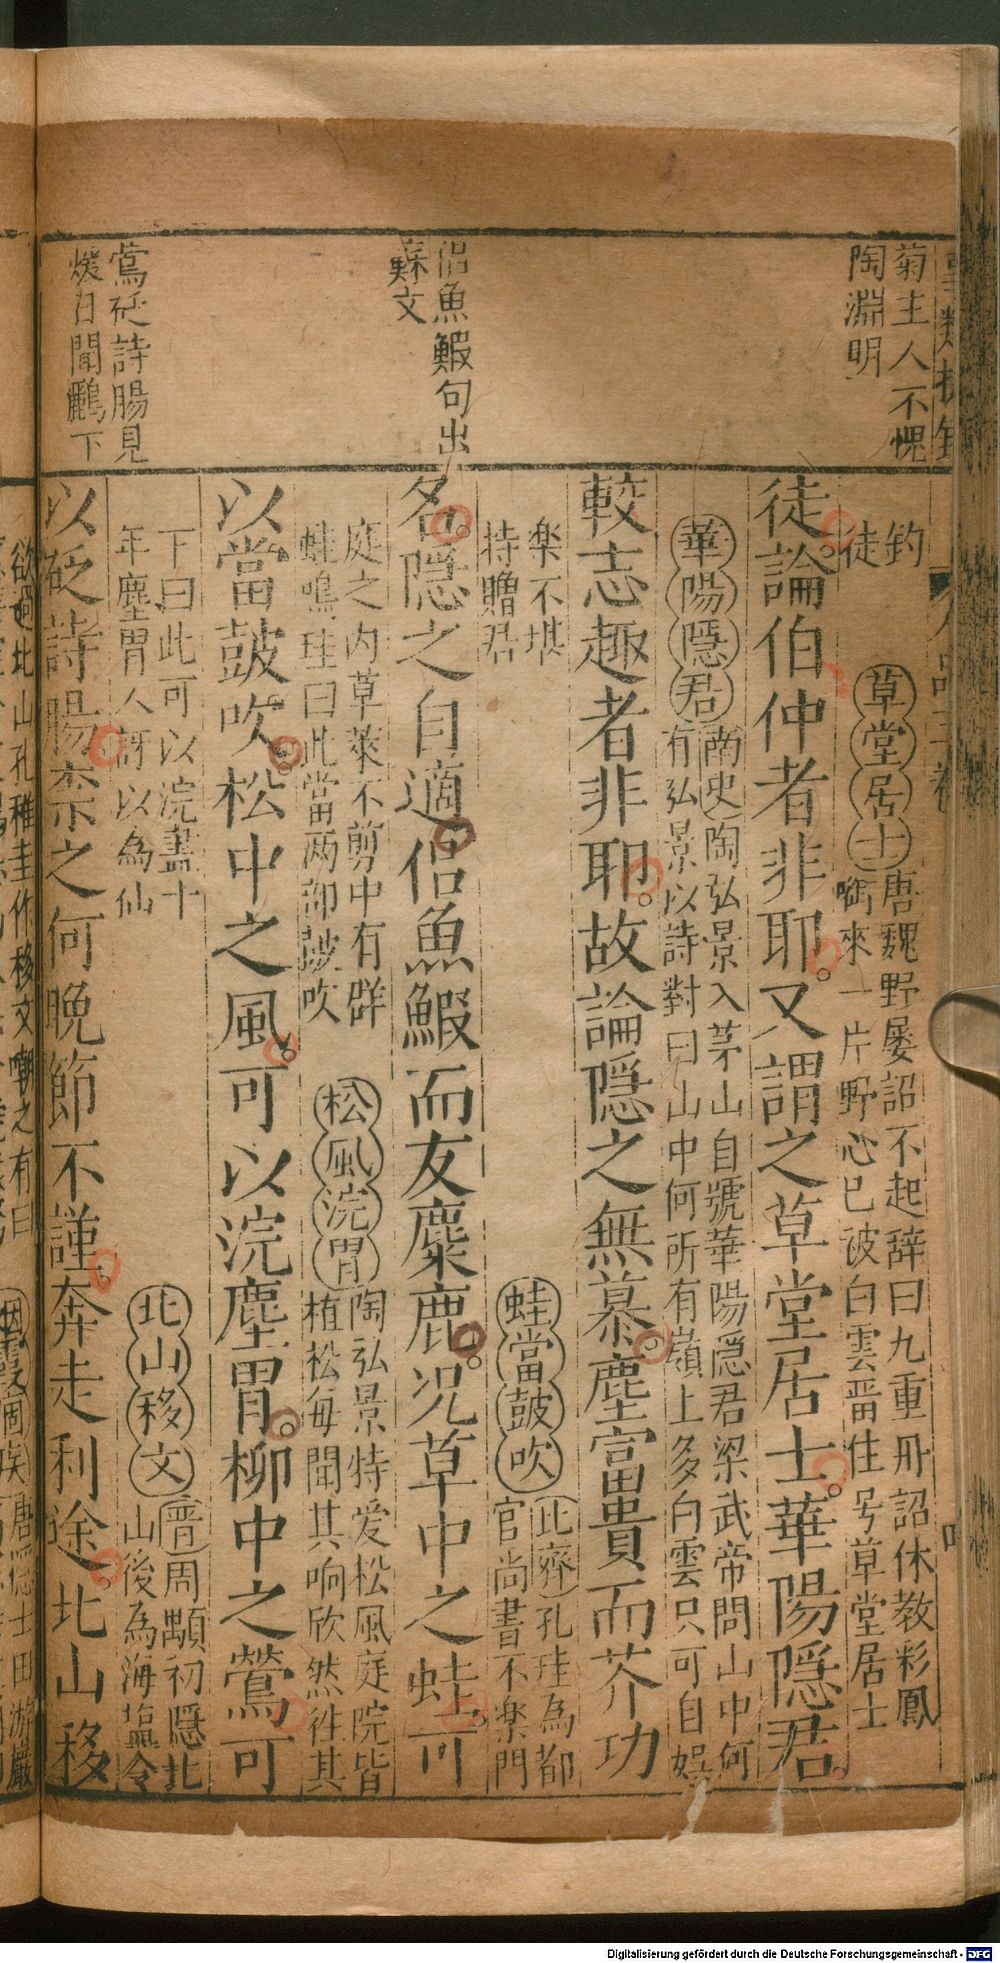 菊主人不愧
陶淵明
侶魚鰕句出
蘇文
鶯砭詩腸見
煖日聞鸝下
釣
徒
草堂居士
唐魏野屡詔不起辞曰九重冊詔休教彩鳳
啣來一片野心已被白雲畱住号草堂居士
徒論伯仲者非耶又謂之草堂居士華陽隱君
華陽隱君
南史陶弘景入茅山自號華陽隱君梁武帝問山中何
有弘景以詩對曰山中何所有嶺上多白雲只可自娯
較志趣者非耶故論隠之無慕塵富貴而芥功
楽不堪
持贈君
蛙當鼓吹
北齊孔珪為都
官尚書不楽門
名隠之自適侶魚鰕而友麋鹿况草中之蛙可
庭之内草萊不剪中有群
蛙鳴珪曰此當两部鼓吹
松風浣胃
陶弘景特爱松風庭院皆
植松每聞其响欣然徃其
以當鼓吹松中之風可以浣塵胃柳中之鶯可
下曰此可以浣盡十
年塵胃人訝以為仙
北山移文
齊周顒初隱北
山後為海塩令
以砭詩腸柰之何晚節不謹奔走利途北山移
欲過北山孔稚圭作移文嘲之有曰
唐隠士田游巖
Digitalisierung gefördert durch die Deutsche Forschungsgemeinschaft - DFG